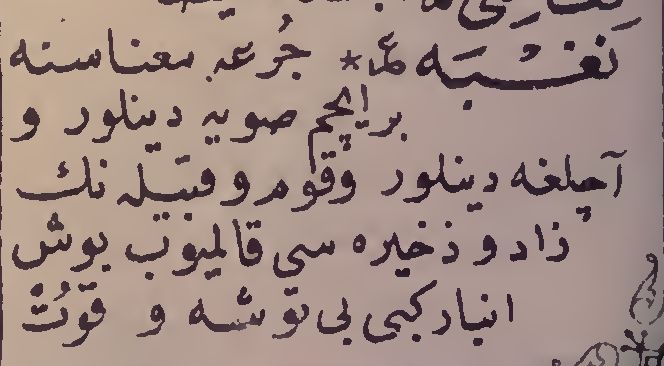 نَغْبَه ﻋ * جُرعه معناسنه
بر ايچم صويه دينلور و
آچلغه دينلور وقوم وقبيله نك
زاد و ذخيره سي قالميوب بوش
انبار كبى بى توشه و قوتْ